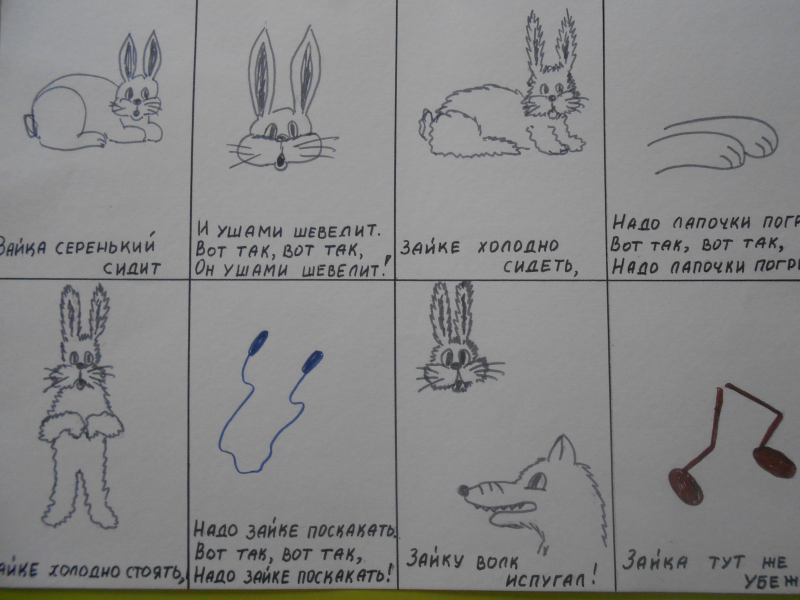 ЗАЙКА СЕРЕНЬКИЙ
СИДИТ
И УШАМИ ШЕВЕЛИТ.
ВОТ ТАК, ВОТ ТАК,
ОН УШАМИ ШЕВЕЛИТ!
ЗАЙКЕ ХОЛОДНО
СИДЕТЬ,
НАДО ЛАПОЧКИ
ВОТ ТАК, ВОТ ТАК,
НАДО ЛАПОЧКИ
ЗАЙКЕ ХОЛОДНО СТОЯТЬ,
НАДО ЗАЙКЕ ПОСКАКАТЬ.
ВОТ ТАК, ВОТ ТАК,
НАДО ЗАЙКЕ ПОСКАКАТЬ!
ЗАЙКУ ВОЛК
ИСПУГАЛ!
ЗАЙКА ТУТ ЖЕ